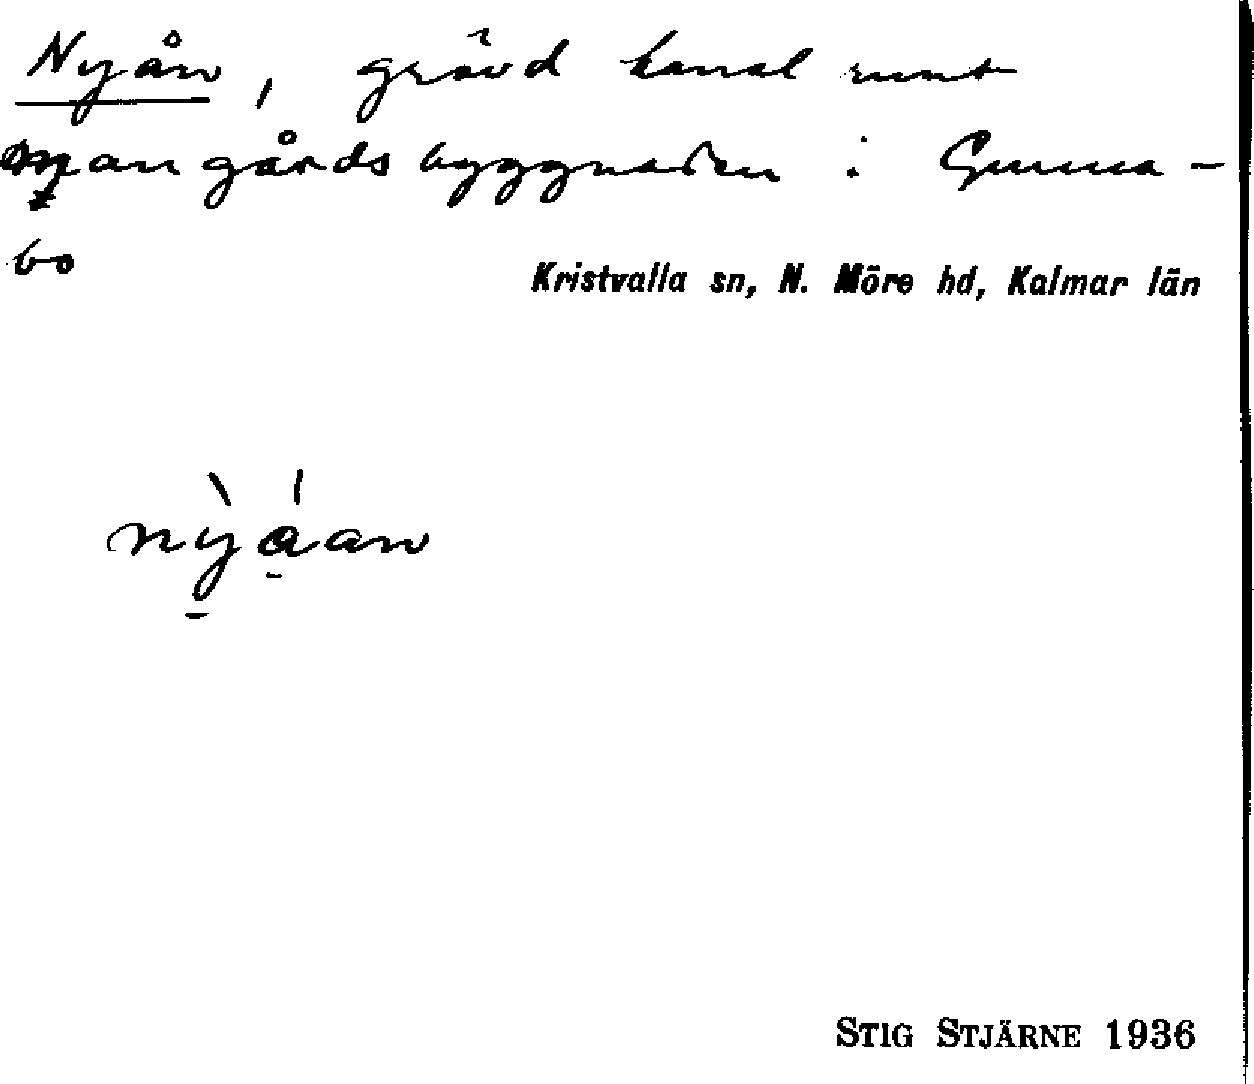 Nyån, grävd kanal runt
mangårdsbyggnaden i Gunna-
bo
Kristvalla sn, N. Möre hd, Kalmar län
nỳáan
STIG STJÄRNE 1936